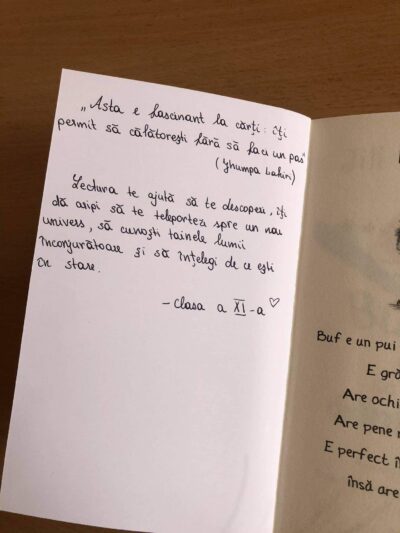 „Asta e fascinant la cărți: îți
permit să călătorești fără să faci un pas"
(Jhumpa Lahiri)
Lectura te ajută să te descoperi, îți
dă aripi să te teleportezi spre un nou
univers, să cunoști tainele lumii
înconjurătoare și să înțelegi de ce ești
în stare.
- Clasa a XI-a ♡
Buf e un pui
E gră
Are ochi
Are pene
E perfect în
însă are